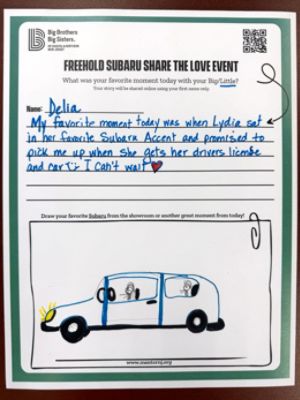 Big Brothers
Big Sisters.
FREEHOLD SUBARU SHARE THE LOVE EVENT
What was your favorite moment today with your Big/Little?
Your story will be shared online using your first name only.
Name: Delia
My favorite moment today was when Lydia sat
in her favorite Subaru Accent and promised to
pick me up when she gets her drivers license
and car :) I can't wait ♥
Draw your favorite Subaru from the showroom or another great moment from today!
www.mentornj.org